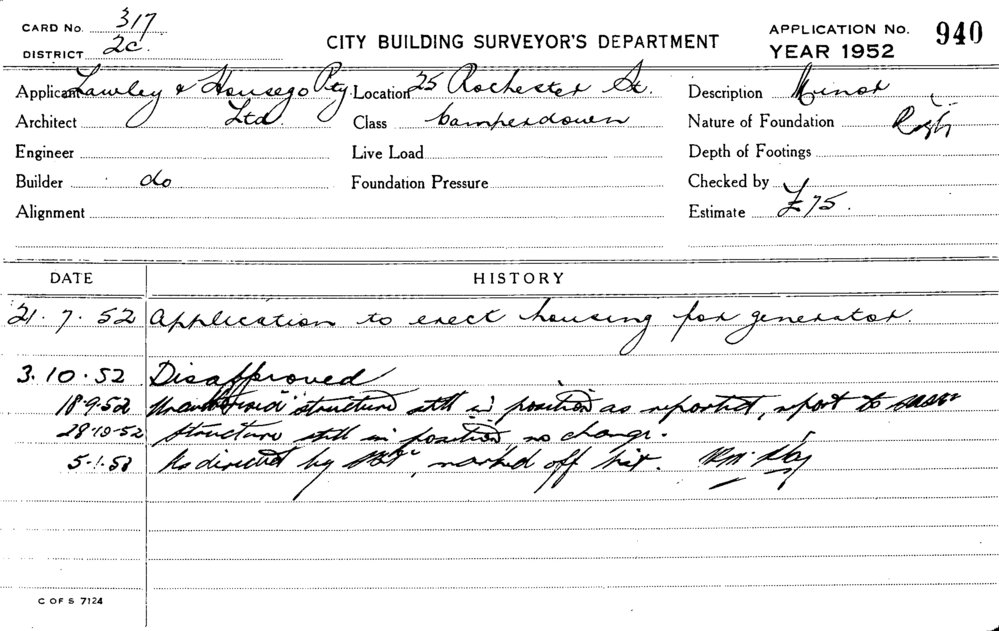 CARD No. 317
DISTRICT 2c.
CITY BUILDING SURVEYOR'S DEPARTMENT
APPLICATION No. 940
YEAR 1952
Applicant Lawley & Housego Pty Location 25 Rochester St. Description Minor
Architect Ltd. Class Camperdown Nature of Foundation
Engineer Live Load Depth of Footings
Builder do Foundation Pressure Checked by
Alignment Estimate £75.
DATE HISTORY
21.7.52 Application to erect housing for generator.
3.10.52 Disapproved
18.9.52 structure still in position as reported, report to
28.10.52 Structure still in position, no change.
5.1.53 As directed by marked off list.
C OF S 7124